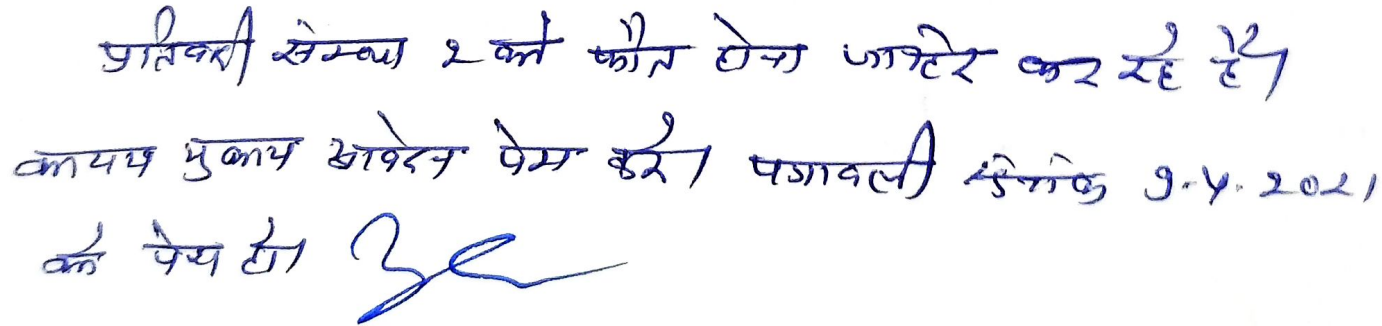 प्रतिवादी संख्या 2 को फौत होना जाहिर कर रहे है।
कायम मुकाम आवेदन पेश करे। पत्रावली दिनांक 9.4.2021
को पेश हो।